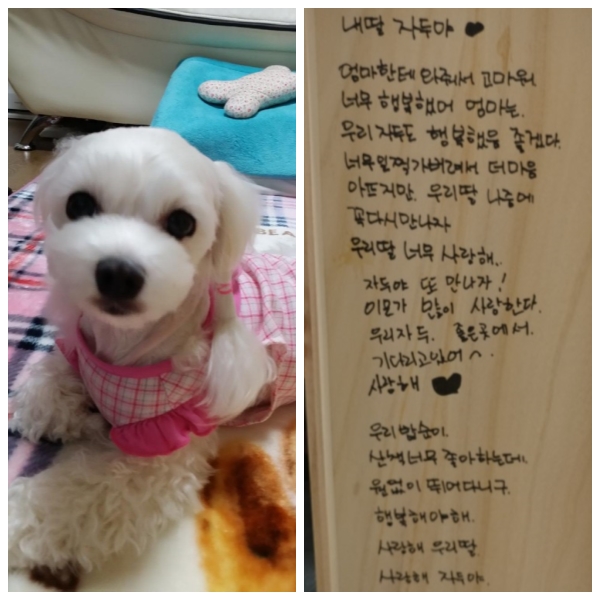 내딸 자두야 ♥
엄마한테 와줘서 고마워
너무 행복했어 엄마는.
우리 자두도 행복했음 좋겠다.
너무일찍가버려서 더마음
아프지만. 우리딸 나중에
꼭다시만나자
우리딸 너무 사랑해..
자두야 또 만나자!
이모가 많이 사랑한다.
우리자두. 좋은곳에서.
기다리고있어^.
사랑해 ♥
우리밥순이.
산책너무 좋아하는데.
원없이 뛰어다니구.
행복해야해.
사랑해 우리딸
사랑해 자두야.